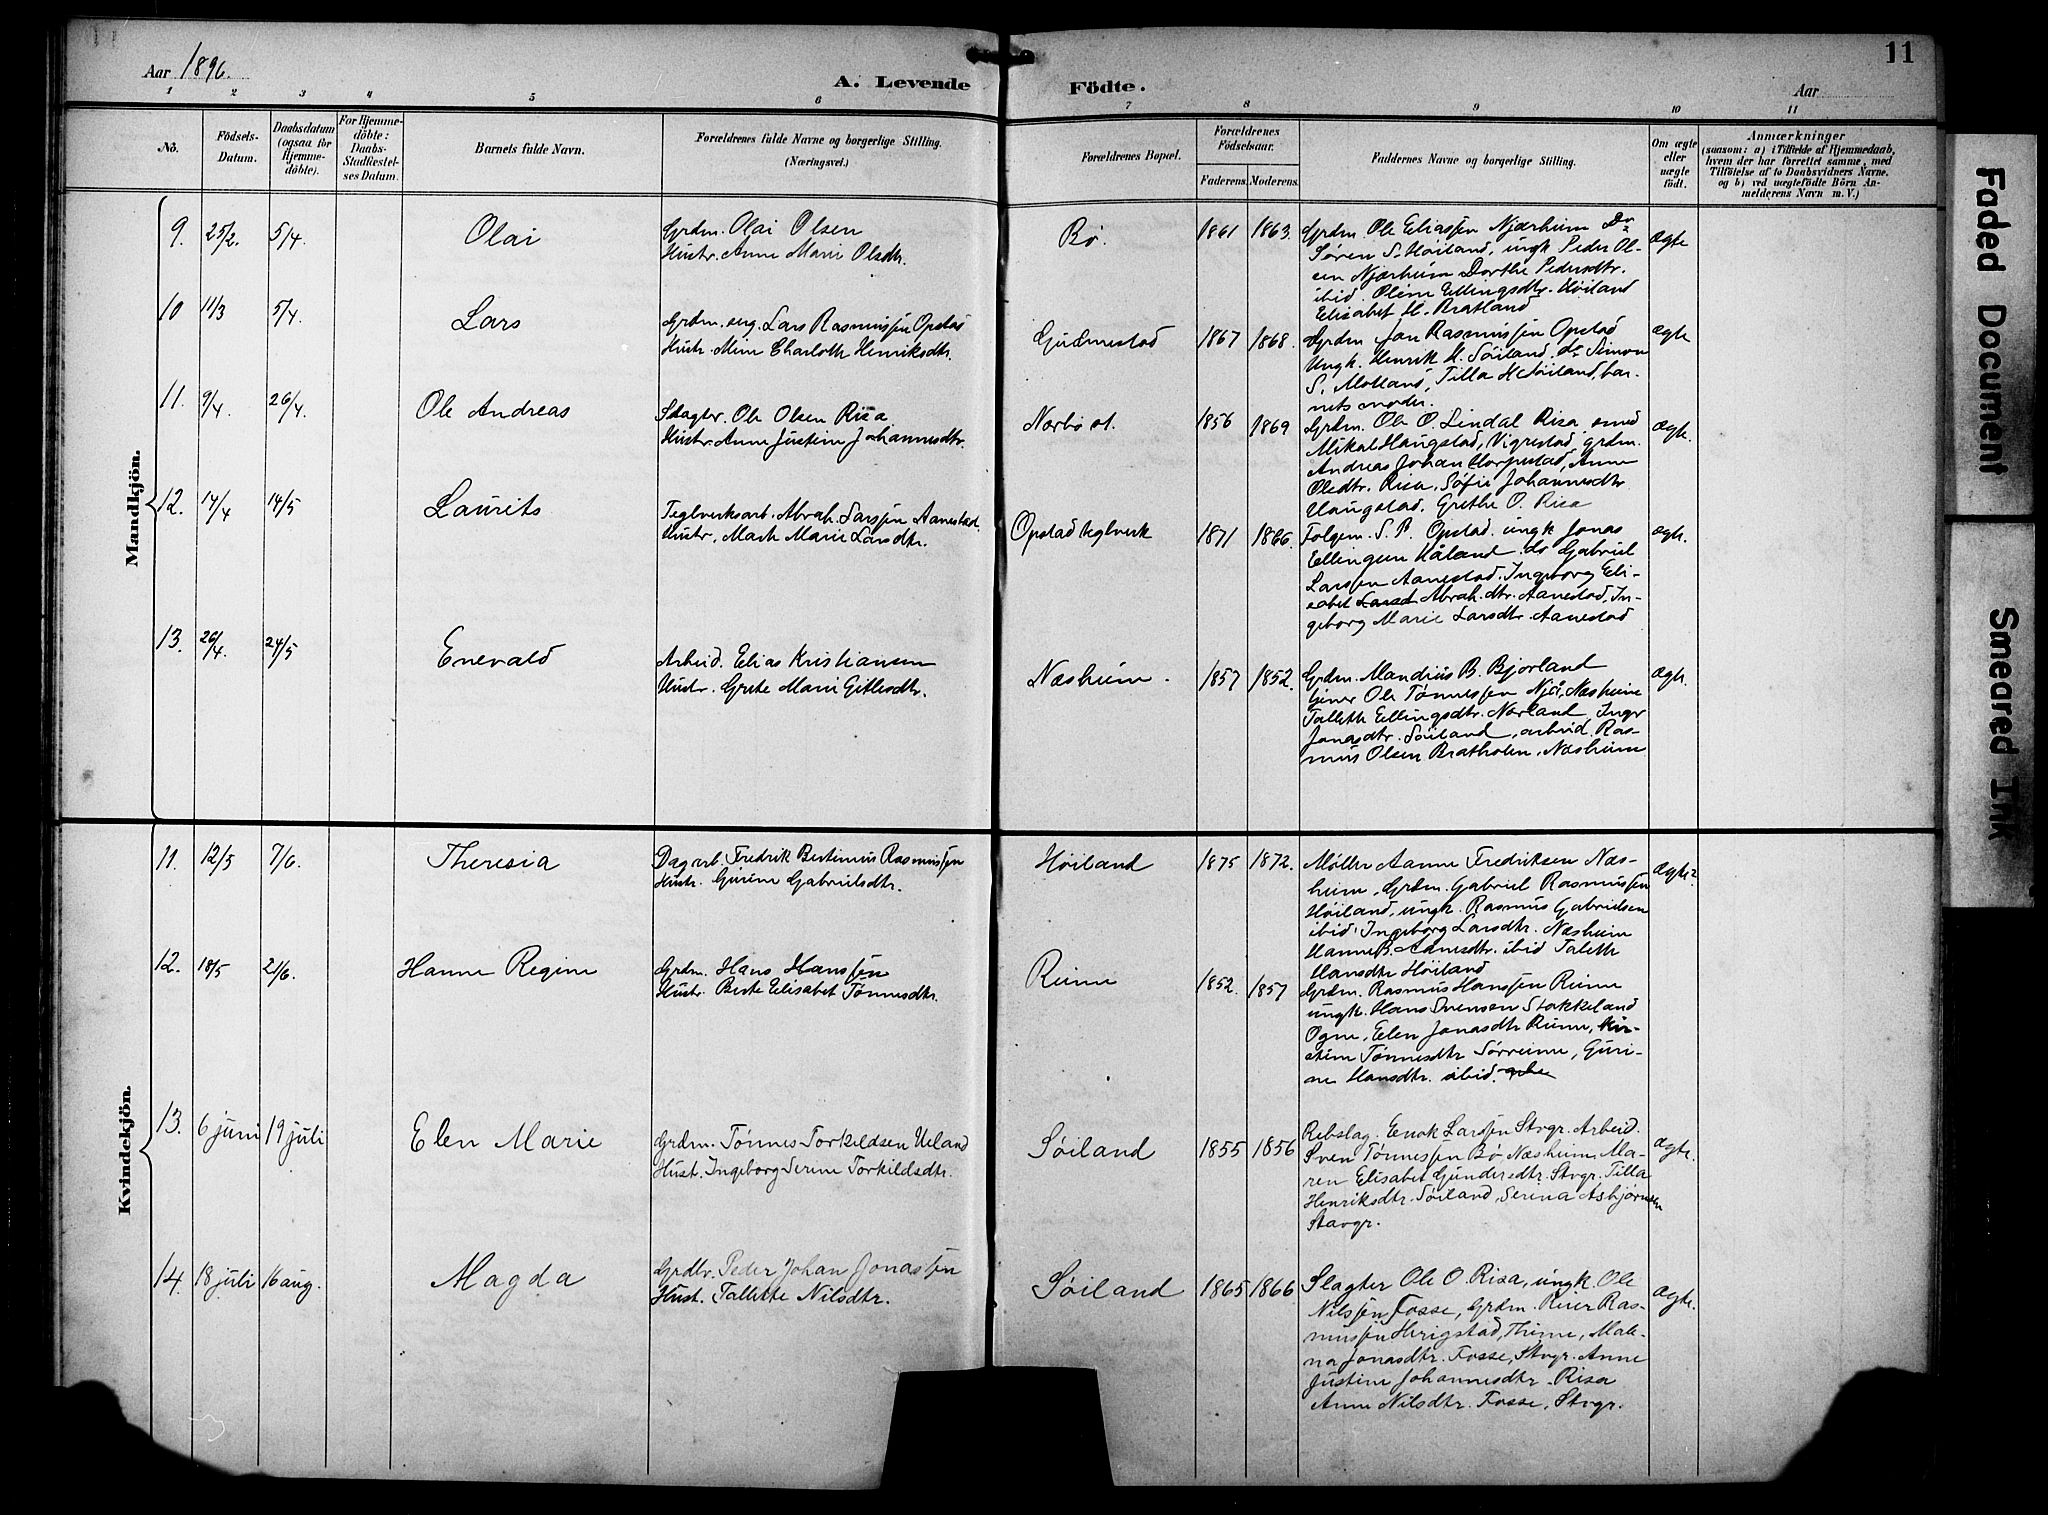 Aar 1896.
A. Levende Födte.
Aar
11
1 2 3 4 5 6 7 8 9 10 11
No.
Födsels-
Datum.
Daabsdatum
(ogsaa for
Hjemme-
döbte).
For Hjemme-
döbte:
Daabs-
Stadfæstel-
ses Datum.
Barnets fulde Navn.
Forældrenes fulde Navne og borgerlige Stilling.
(Næringsvei.)
Forældrenes Bopæl.
Forældrenes
Födselsaar.
Faderens. Moderens.
Faddernes Navne og borgerlige Stilling.
Om ægte
eller
uægte
födt.
Anmærkninger
(saasom: a) i Tilfælde af Hjemmedaab,
hvem der har forrettet samme, med
Tilföielse af to Daabsvidners Navne.
og b) ved uægtefödte Börn An-
melderens Navn m. V.)
Mandkjön.
9. 25/2. 5/4. Olai
Grdm. Olai Olsen
Hustr. Anne Marie Olsdtr.
Bø. 1861 1863.
Grdm Ole Eliassen Njærheim Do
Søren S. Høiland, ungk Peder Ol-
sen Njærheim Dorthe Pedersdtr.
ibid. Oline Ellingsdtr. Høiland
Elisabet H. Bratland
ægte
10 11/3 5/4. Lars
Grdm. sug. Lars Rasmussen Opstad
Hustr. Mine Charloth Henriksdtr.
Gudmestad 1867 1868.
Grdm Jon Rasmussen Opstad
Ungk. Henrik H. Søiland. do Simon
S. Motland, Tilla H Søiland, bar-
nets moder.
ægte
11. 9/4. 26/4. Ole Andreas
Slagter. Ole Olsen Risa
Hustr. Anne Justine Johannesdtr.
Nærbø st. 1856 1869
Grdm. Ole O. Lindal Risa. smed
Mikal Haugstad, Vigrestad, grdm.
Andreas Johan Horpestad, Anne
Olsdtr. Risa, Søfie Johannesdtr
Haugstad, Grethe O. Risa
ægte.
12. 17/4 14/5 Laurits
Teglverksarb. Abrah. Larssen Aanestad.
Hustr. Marth Marie Larsdtr.
Opstad teglverk 1871 1866.
Folgem. S. P. Opstad. ungk Jonas
Ellingsen Håland do Gabriel
Larssen Aanestad. Ingeborg Eli-
sabet Larsd Abrah.dtr. Aanestad, In-
geborg Marie Larsdtr. Aanestad
ægte.
13. 26/4. 24/5 Enevald
Arbeid. Elias Kristiansen
Hustr. Grete Marie Gitlesdtr.
Næsheim. 1857 1852.
Grdm. Mandrius B. Bjorland
Ole Tønnessen Njå, Næsheim
Talleth Ellingsdtr. Norland, Inger
Jonasdtr. Søiland, arbeid. Ras-
mus Olsen Brattholen, Næsheim
ægte.
Kvindekjön.
11. 12/5 7/6. Theresia
Dagarb. Fredrik Bertinius Rasmussen
Hustr. Gurine Gabrielsdtr.
Høiland 1875 1872.
Møller Aanne Fredriksen Næs-
heim, Grdm. Gabriel Rasmussen
Høiland, ungk. Rasmus Gabrielsen
ibid, Ingeborg Larsdtr. Næsheim
Hanne B. Aanesdtr. ibid Taleth
Hansdtr Høiland
ægte?
12. 18/5 21/6. Hanne Regine
Grdm. Hans Hanssen
Hustr. Berte Elisabet Tønnesdtr.
Reime 1852. 1857
Grdm. Rasmus Hanssen Reime
ungk. Hans Svensen Stokkeland
Ogne, Elen Jonasdtr Reime, Kir-
stine Tønnesdtr Sørreime, Guri-
ne Hansdtr. ibid.
13. 6 juni 19 juli Elen Marie
Grdm. Tønnes Torkildsen Ueland
Hust. Ingeborg Serine Torkildsdtr.
Søiland 1855 1856
Rebslag. Enok Larssen Stvgr. Arbeid.
Sven Tønnessen Bø Næsheim, Ma-
ren Elisabet Gundersdtr. Stvgr. Tilla
Henriksdtr. Søiland, Serina Asbjørnsen
Stavgr.
ægte.
14. 18 juli 16 aug. Magda
Grdbr. Peder Johan Jonassen
Hust. Tallette Nilsdtr.
Søiland 1865 1866
Slagter Ole O. Risa, ungk. Ole
Nilssen Fosse, Grdm. Reier Ras-
mussen Herigstad, Thime, Male-
na Jonasdtr. Fosse, Stvgr. Anne
Justine Johannesdtr. Risa
Anne Nilsdtr. Fosse, Stvgr.
ægte.
Faded Document
Smeared Ink